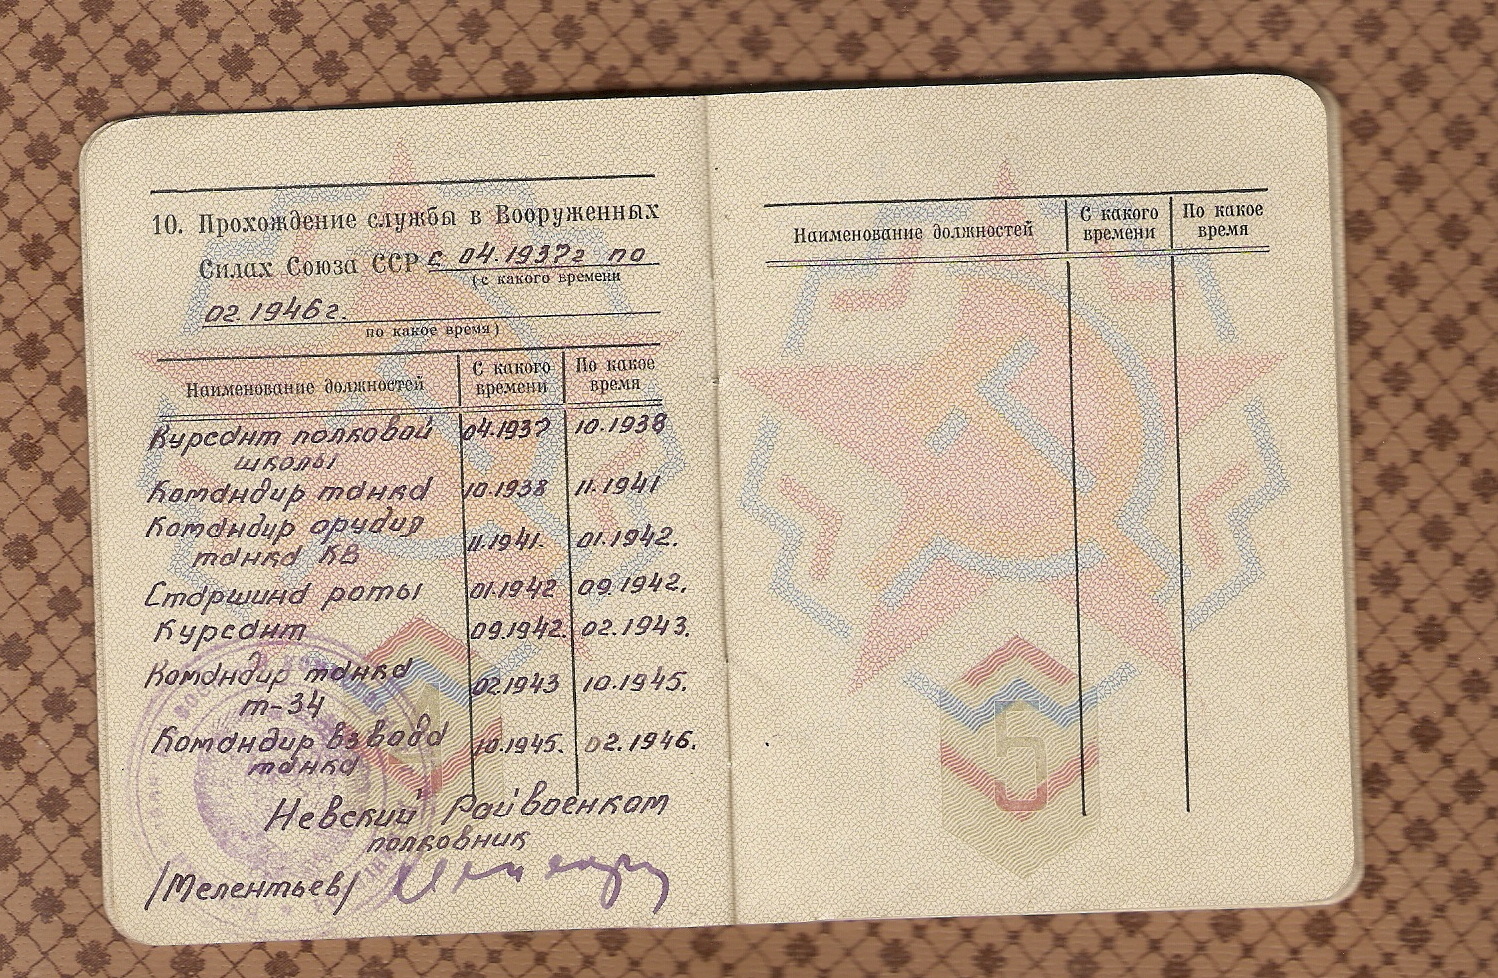 10. Прохождение службы в Вооруженных
Силах Союза ССР с 04.1937г по
(с какого времени
02.1946г.
по какое время)
Наименование должностей
С какого времени
По какое время
Курсант полковой 04.1937 10.1938
школы
Командир танка 10.1938 11.1941
Командир орудия
танка КВ 11.1941. 01.1942.
Старшина роты 01.1942 09.1942.
Курсант 09.1942. 02.1943.
Командир танка 02.1943 10.1945.
т-34
Командир взвода 10.1945. 02.1946.
танка
Невский Райвоенком
полковник
/Мелентьев/
4
Наименование должностей
С какого времени
По какое время
5